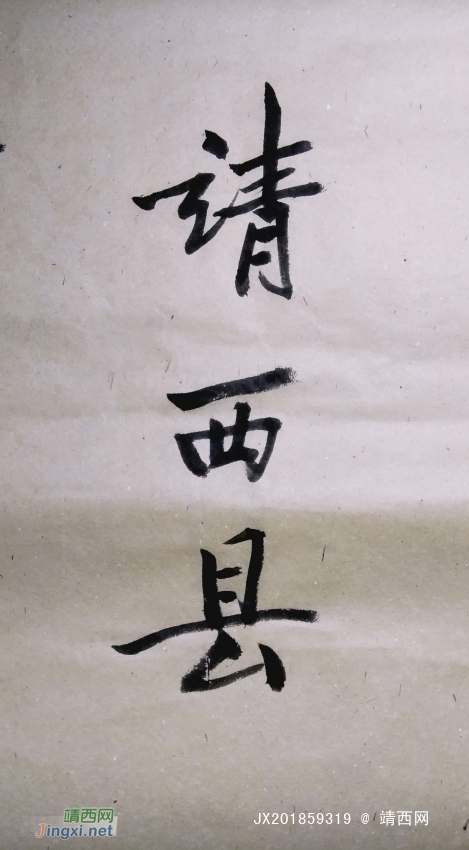 靖
西
县
靖西网
Jingxi.net
JX201859319 @ 靖西网